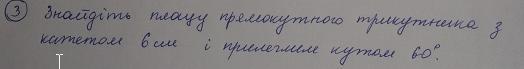 ③ Знайдіть площу прямокутного трикутника з
катетом 6 см і прилеглим кутом 60°.